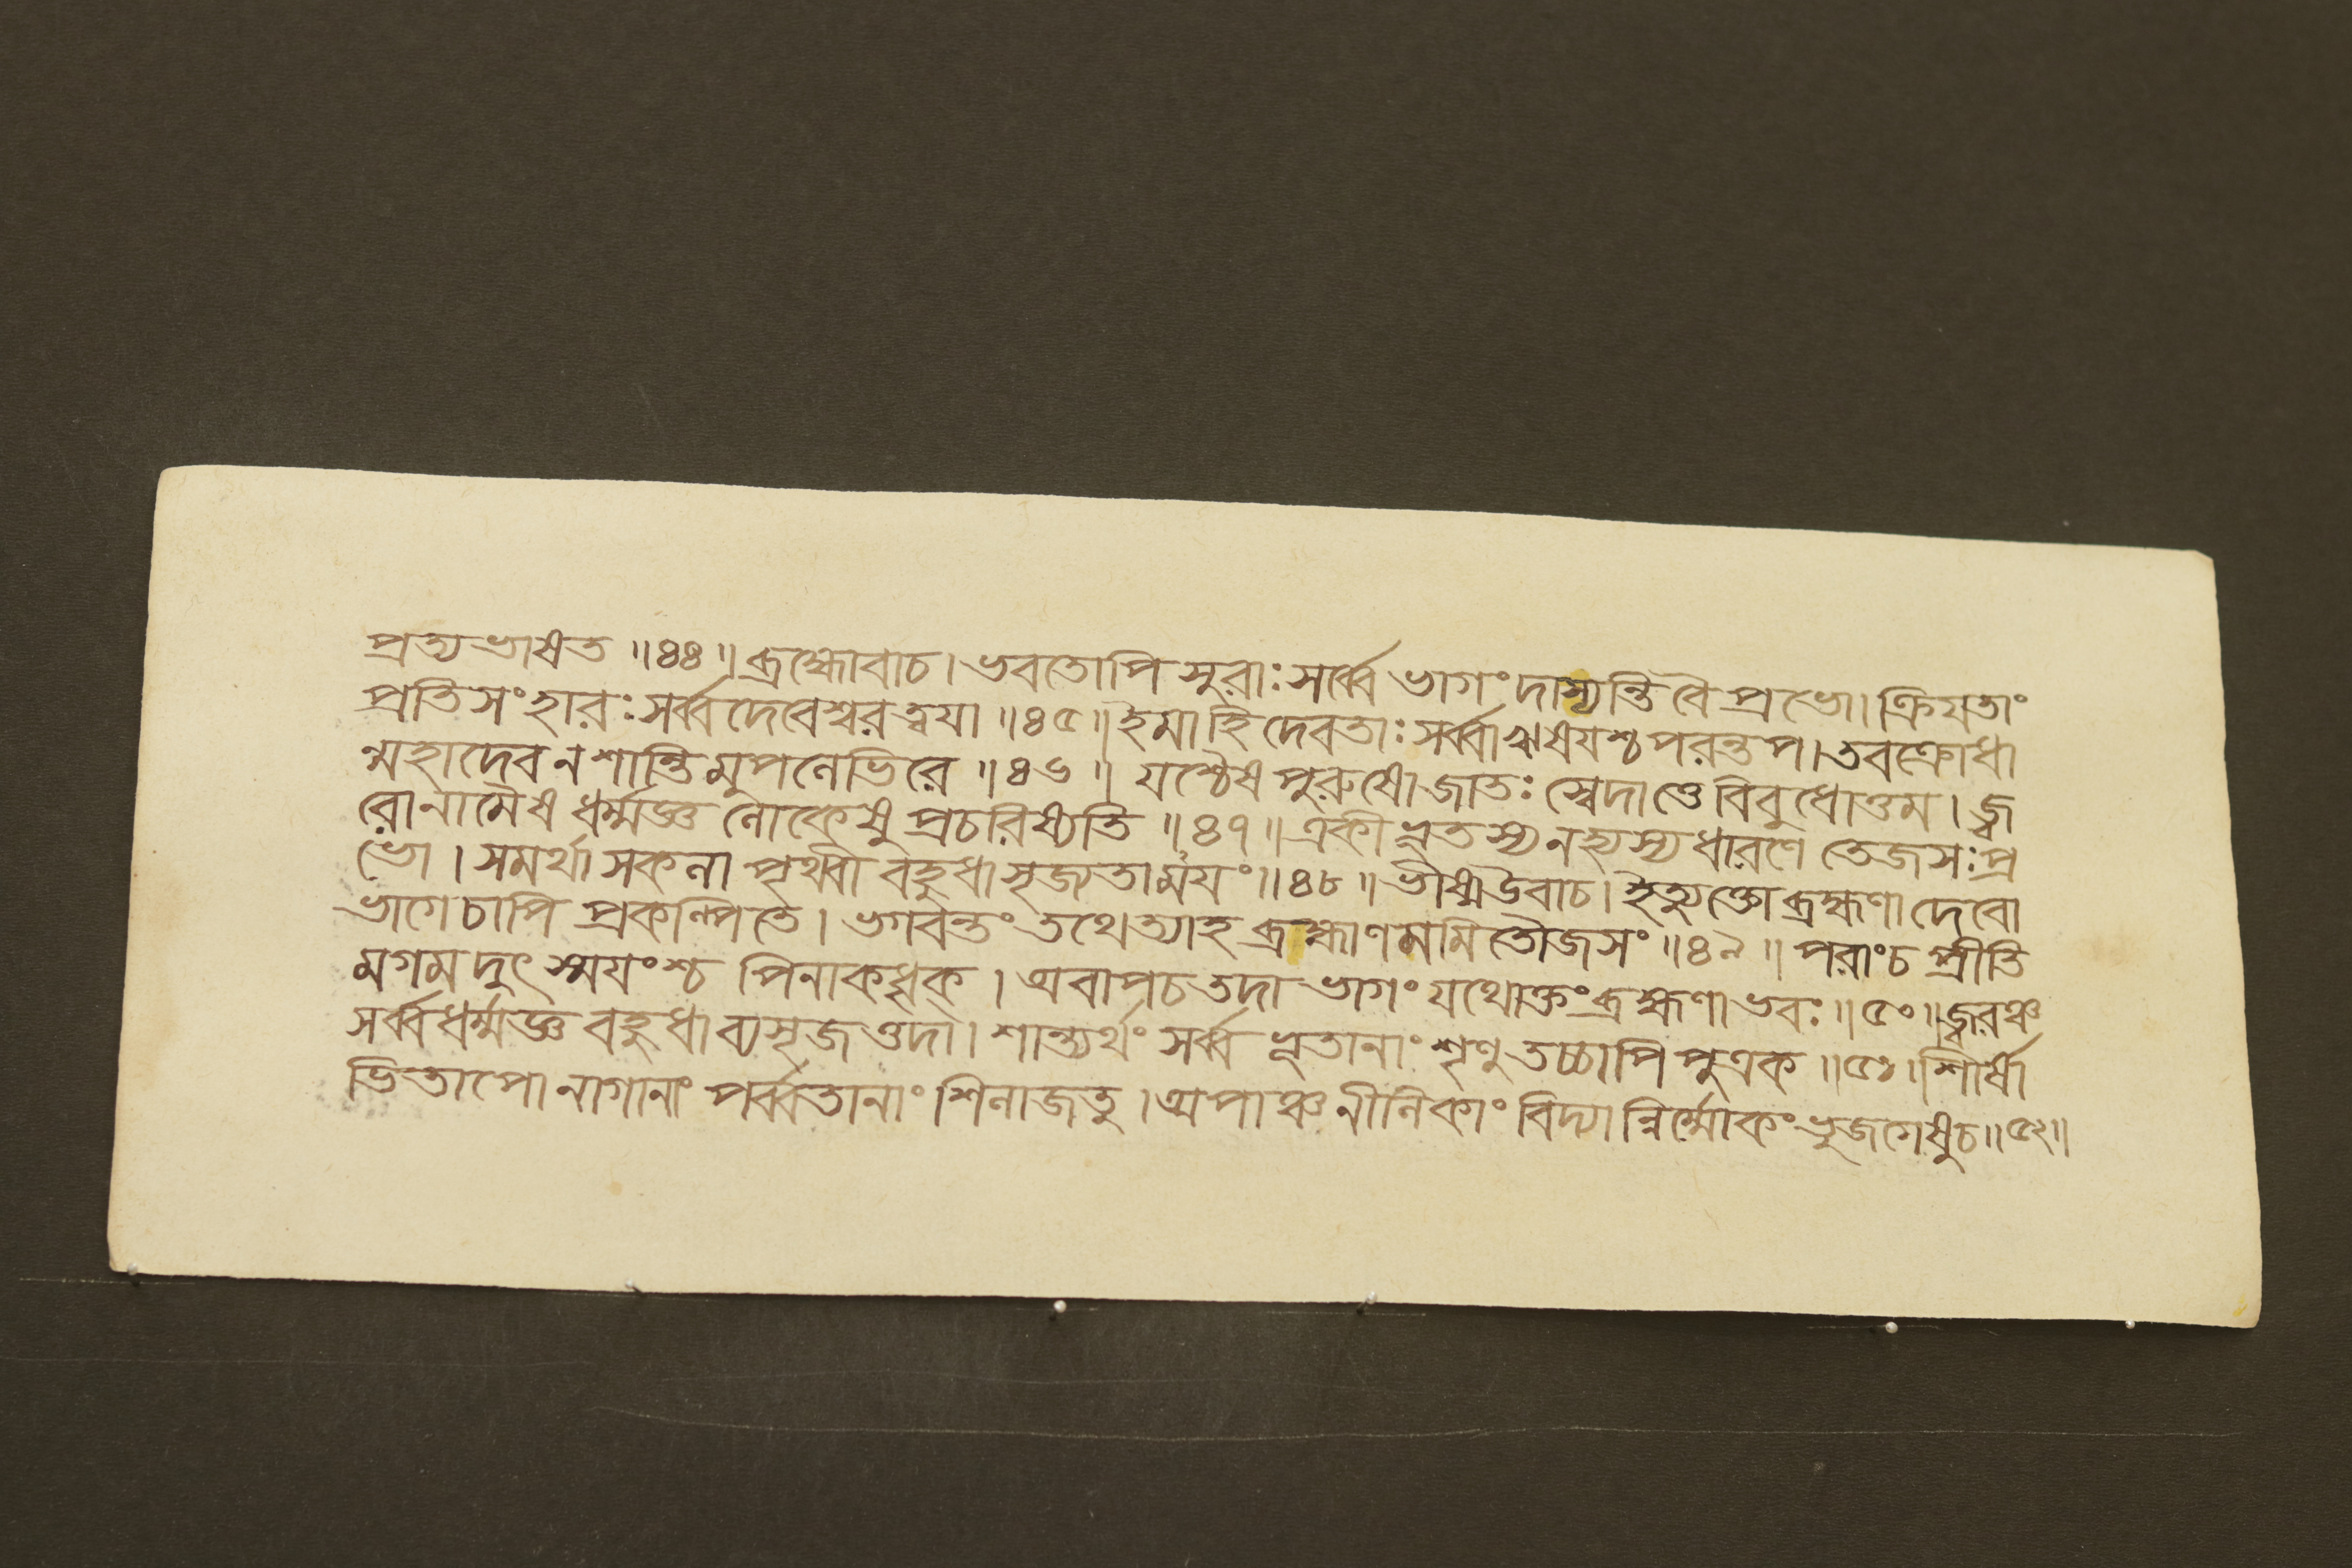 প্রত্যভাষত ॥৪৪॥ ব্রহ্মোবাচ। ভবতোপি সুরাঃ সর্ব্বে ভাগং দাস্যন্তি বৈ প্রভো। ক্রিযতাং
প্রতিসংহারঃ সর্ব্বদেবেশ্বর ত্বযা ॥৪৫॥ ইমা হি দেবতাঃ সর্ব্বা ঋষযশ্চ পরন্তপ। তব ক্রোধা
ন্মহাদেব ন শান্তিমুপলেভিরে ॥৪৬॥ যশ্চৈষ পুরুষো জাতঃ স্বেদাত্তে বিবুধোত্তম। জ্ব
রো নামৈষ ধর্ম্মজ্ঞ লোকেষু প্রচরিষ্যতি ॥৪৭॥ একীভূতস্য ন হ্যস্য ধারণে তেজসঃ প্র
ভো। সমর্থা সকলা পৃথ্বী বহুধা সৃজ্যতাময়ং ॥৪৮॥ ভীষ্ম উবাচ। ইত্যুক্তো ব্রহ্মণা দেবো
ভাগে চাপি প্রকল্পিতে। ভগবন্তং তথেত্যাহ ব্রহ্মাণমমিতৌজসং ॥৪৯॥ পরাং চ প্রীতি
মগমদুৎস্ময়ংশ্চ পিনাকধৃক্। অবাপ চ তদা ভাগং যথোক্তং ব্রহ্মণা ভবঃ ॥৫০॥ জ্বরঞ্চ
সর্ব্বধর্ম্মজ্ঞ বহুধা ব্যসৃজত্তদা। শান্ত্যর্থং সর্ব্বভূতানাং শৃণু তচ্চাপি পুত্রক ॥৫১। শীর্ষা
ভিতাপো নাগানাং পর্ব্বতানাং শিলাজতু। অপাঞ্চ নীলিকাং বিদ্যান্নির্ম্মোকং ভুজগেষু চ॥৫২॥